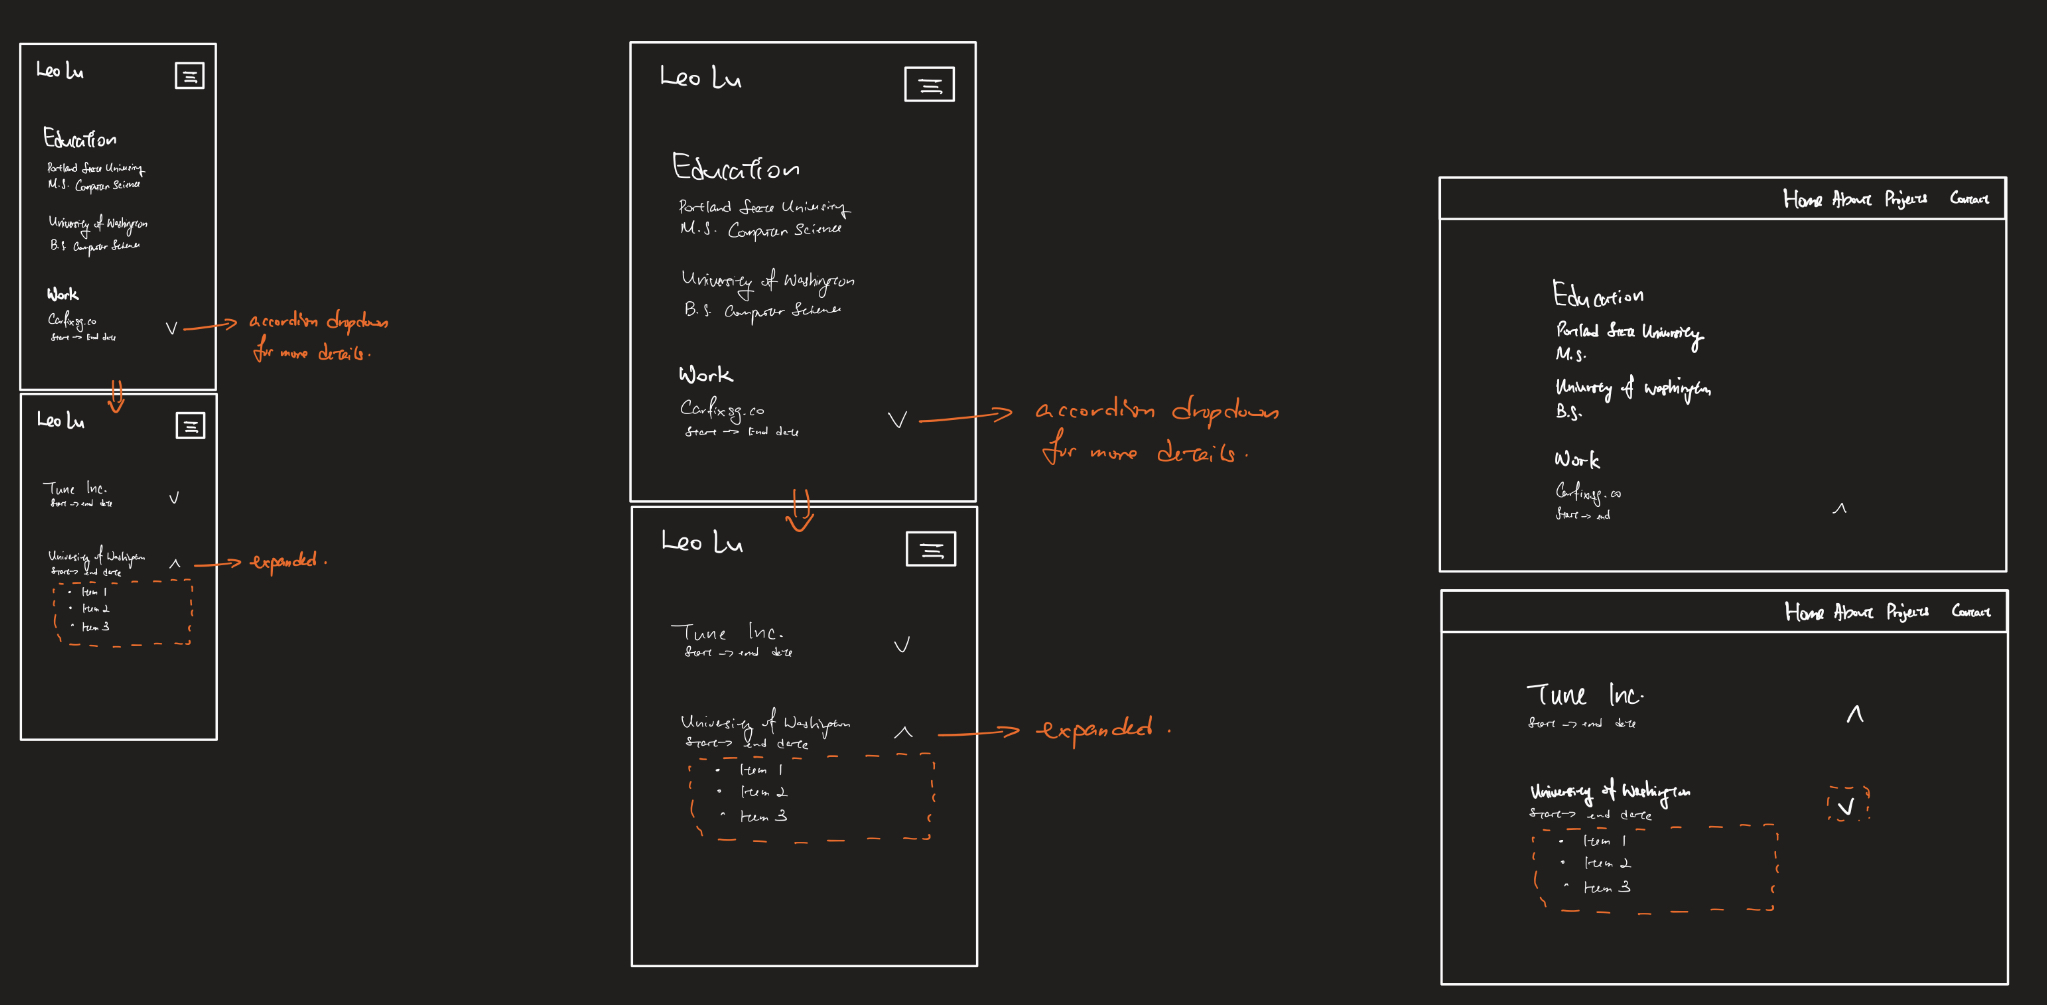 Leo Lu
Education
Portland State University
M.S. Computer Science
University of Washington
B.S. Computer Science
Work
Carfixsg.co
Start → End date
accordion dropdown
for more details.
Leo Lu
Tune Inc.
Start → end date
University of Washington
Start → end date
expanded.
• Item 1
• Item 2
• Item 3
Leo Lu
Education
Portland State University
M.S. Computer Science
University of Washington
B.S. Computer Science
Work
Carfixsg.co
Start → End date
accordion dropdown
for more details.
Leo Lu
Tune Inc.
Start → end date
University of Washington
Start → end date
expanded.
• Item 1
• Item 2
• Item 3
Home About Projects Contact
Education
Portland State University
M.S.
University of Washington
B.S.
Work
Carfixsg.co
Start → end
Home About Projects Contact
Tune Inc.
Start → end date
University of Washington
Start → end date
• Item 1
• Item 2
• Item 3